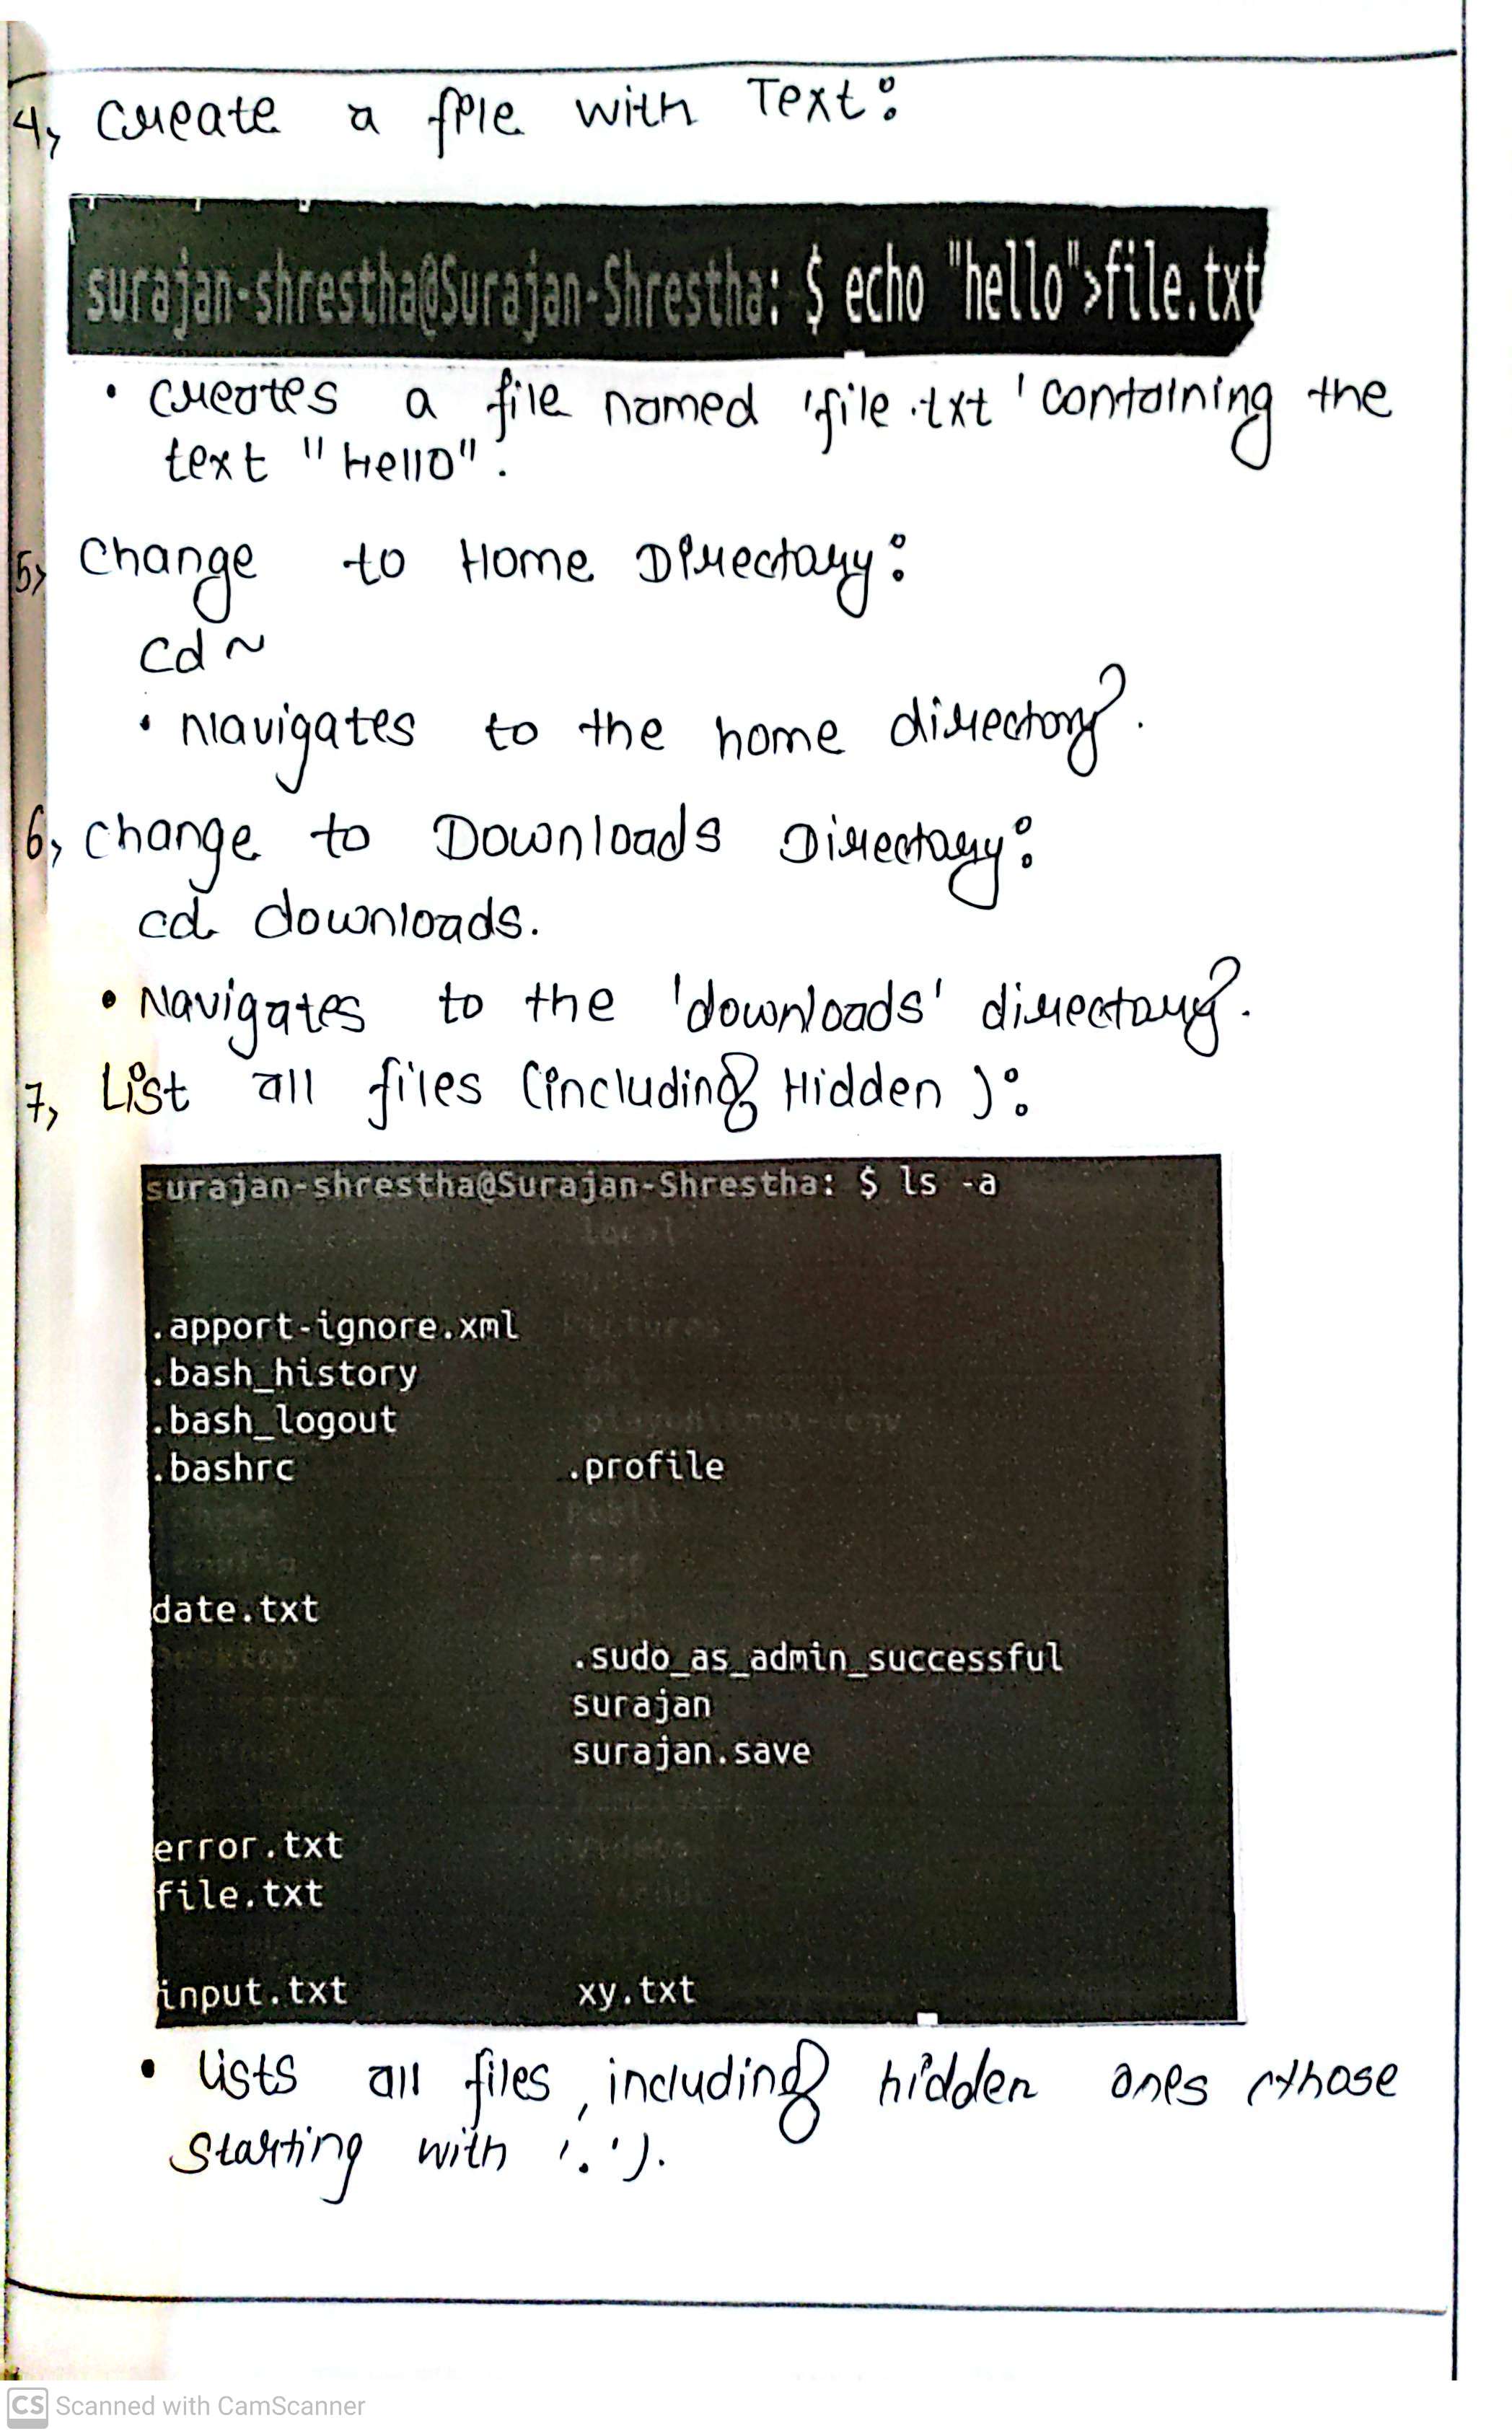 4, Create a file with Text:
surajan-shrestha@Surajan-Shrestha: $ echo "hello">file.txt
• creates a file named 'file.txt' containing the
text "Hello".
5, Change to Home Directory:
cd ~
• navigates to the home directory.
6, change to Downloads Directory:
cd downloads.
• Navigates to the 'downloads' directory.
7, List all files (including Hidden ):
surajan-shrestha@Surajan-Shrestha: $ ls -a
local
Pictures
.apport-ignore.xml
.bash_history
.bash_logout
.bashrc .profile
date.txt
Desktop
.sudo_as_admin_successful
surajan
surajan.save
error.txt Videos
file.txt
input.txt xy.txt
• Lists all files, including hidden ones (those
starting with '.').
CS Scanned with CamScanner